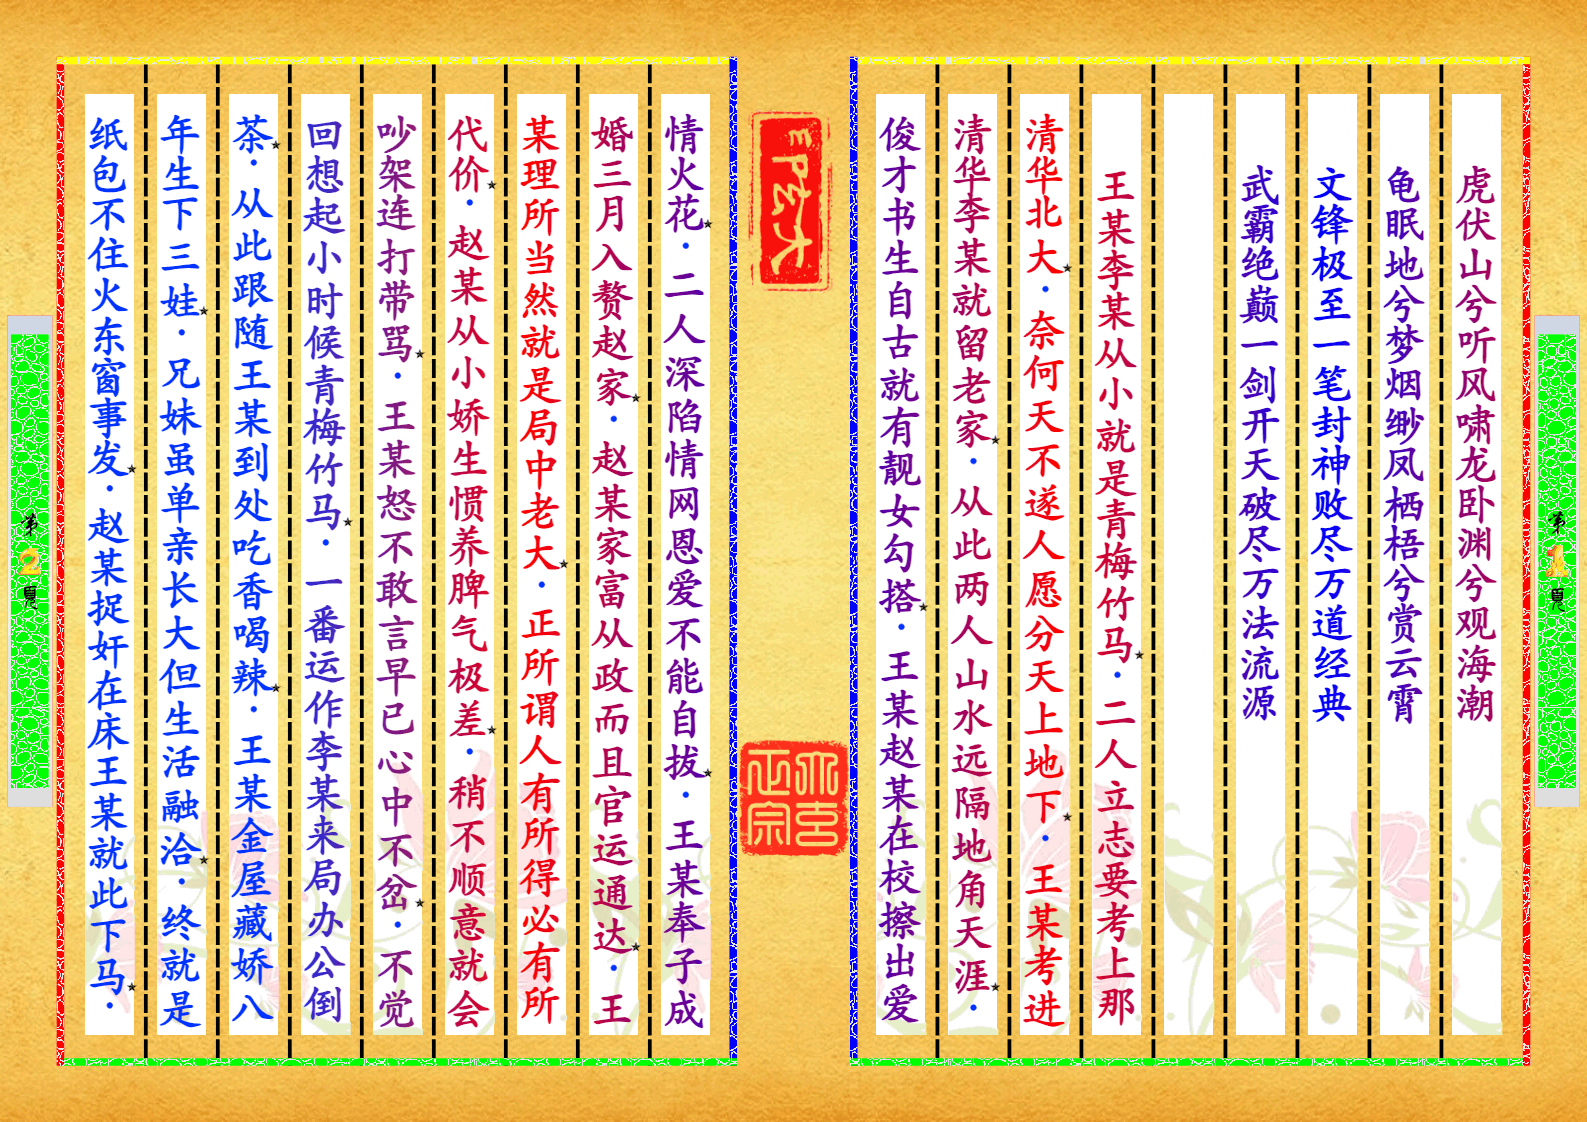 虎伏山兮听风啸龙卧渊兮观海潮
龟眠地兮梦烟缈凤栖梧兮赏云霄
文锋极至一笔封神败尽万道经典
武霸绝巅一剑开天破尽万法流源
王某李某从小就是青梅竹马★·二人立志要考上那
清华北大★·奈何天不遂人愿分天上地下★·王某考进
清华李某就留老家★·从此两人山水远隔地角天涯★·
俊才书生自古就有靓女勾搭★·王某赵某在校擦出爱
第1頁
情火花★·二人深陷情网恩爱不能自拔★·王某奉子成
婚三月入赘赵家★·赵某家富从政而且官运通达★·王
某理所当然就是局中老大★·正所谓人有所得必有所
代价★·赵某从小娇生惯养脾气极差★·稍不顺意就会
吵架连打带骂★·王某怒不敢言早已心中不岔★·不觉
回想起小时候青梅竹马★·一番运作李某来局办公倒
茶★·从此跟随王某到处吃香喝辣★·王某金屋藏娇八
年生下三娃★·兄妹虽单亲长大但生活融洽★·终就是
纸包不住火东窗事发★·赵某捉奸在床王某就此下马★·
第2頁